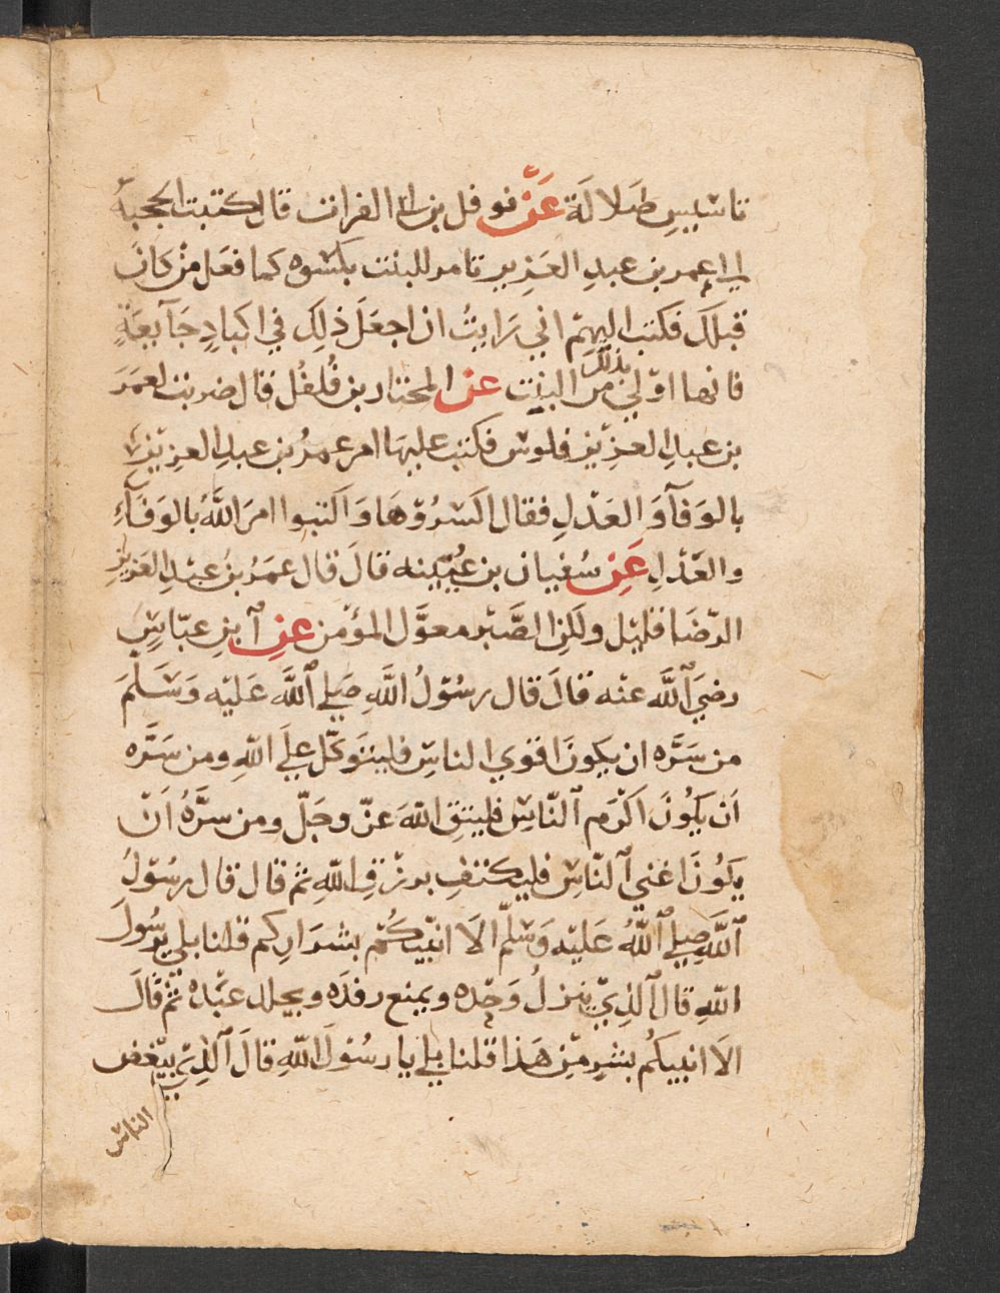 تاسيس ضلالة عن نوفل بن ابي الفرات قال كتبت الحجبة
الي عمر بن عبدِ العَزِيزِ تامر للبيت بكسوه كما فعَل مَن كانَ
قبلك فكتب اليهِمْ اني رَايتُ ان اجعَلَ ذلِكَ في اكبادٍ جَآيعَةٍ
فانها اوْلي بذلك من البيت عن المختار بن فُلفُل قال ضربت لعمَرَ
بن عبدِ العزِيْزِ فلوس فكتب عليهَا امر عمرُ بن عبدِ العزِيْزِ
بالوَفآَ وَالعَدْلِ فقال اكسرُوْهَا وَاكتبوا امرَ اللَّهُ بالوَفَآءِ
والعَدْلِ عَنْ سُفيان بن عُيَيْنه قالَ قال عمَرُ بنُ عبْدِ العَزيزِ
الرّضَا قليْل ولكِن الصَّبْر معوَّل المؤمن عن ابنِ عبّاسٍ
رضيَ اللَّه عنْه قالَ قال رسُوْلُ اللَّهِ صَلي اللَّه عَليْه وَسَلَّمَ
من سَرَّه ان يكونَ اقوي الناسِ فليتَوكّل علَي اللّهِ ومن سَرَّه
اَن يَكُونَ اَكْرَم النّاسِ فليتقِ اللّهَ عزّ وجَلّ ومن سرَّهُ اَنْ
يكُونَ اغني النّاسِ فليكتفِ برزْقِ اللّهِ ثم قال قال رسُوْلُ
اللَّهِ صلي اللَّهُ عَليْه وَسَلَّم الاَ انبّيكُمْ بشرَارِكم قلنا بلي يرسُولَ
اللّهِ قال الذِيْ ينزلُ وَحْده ويمنع رفدَه ويجلد عبْدَه ثمّ قَالَ
الاَ انبيكُم بشرٍ مِّن هَذا قلنا بلي يا رسُولَ اللّهِ قالَ الّذِيْ يبْغض
الناس